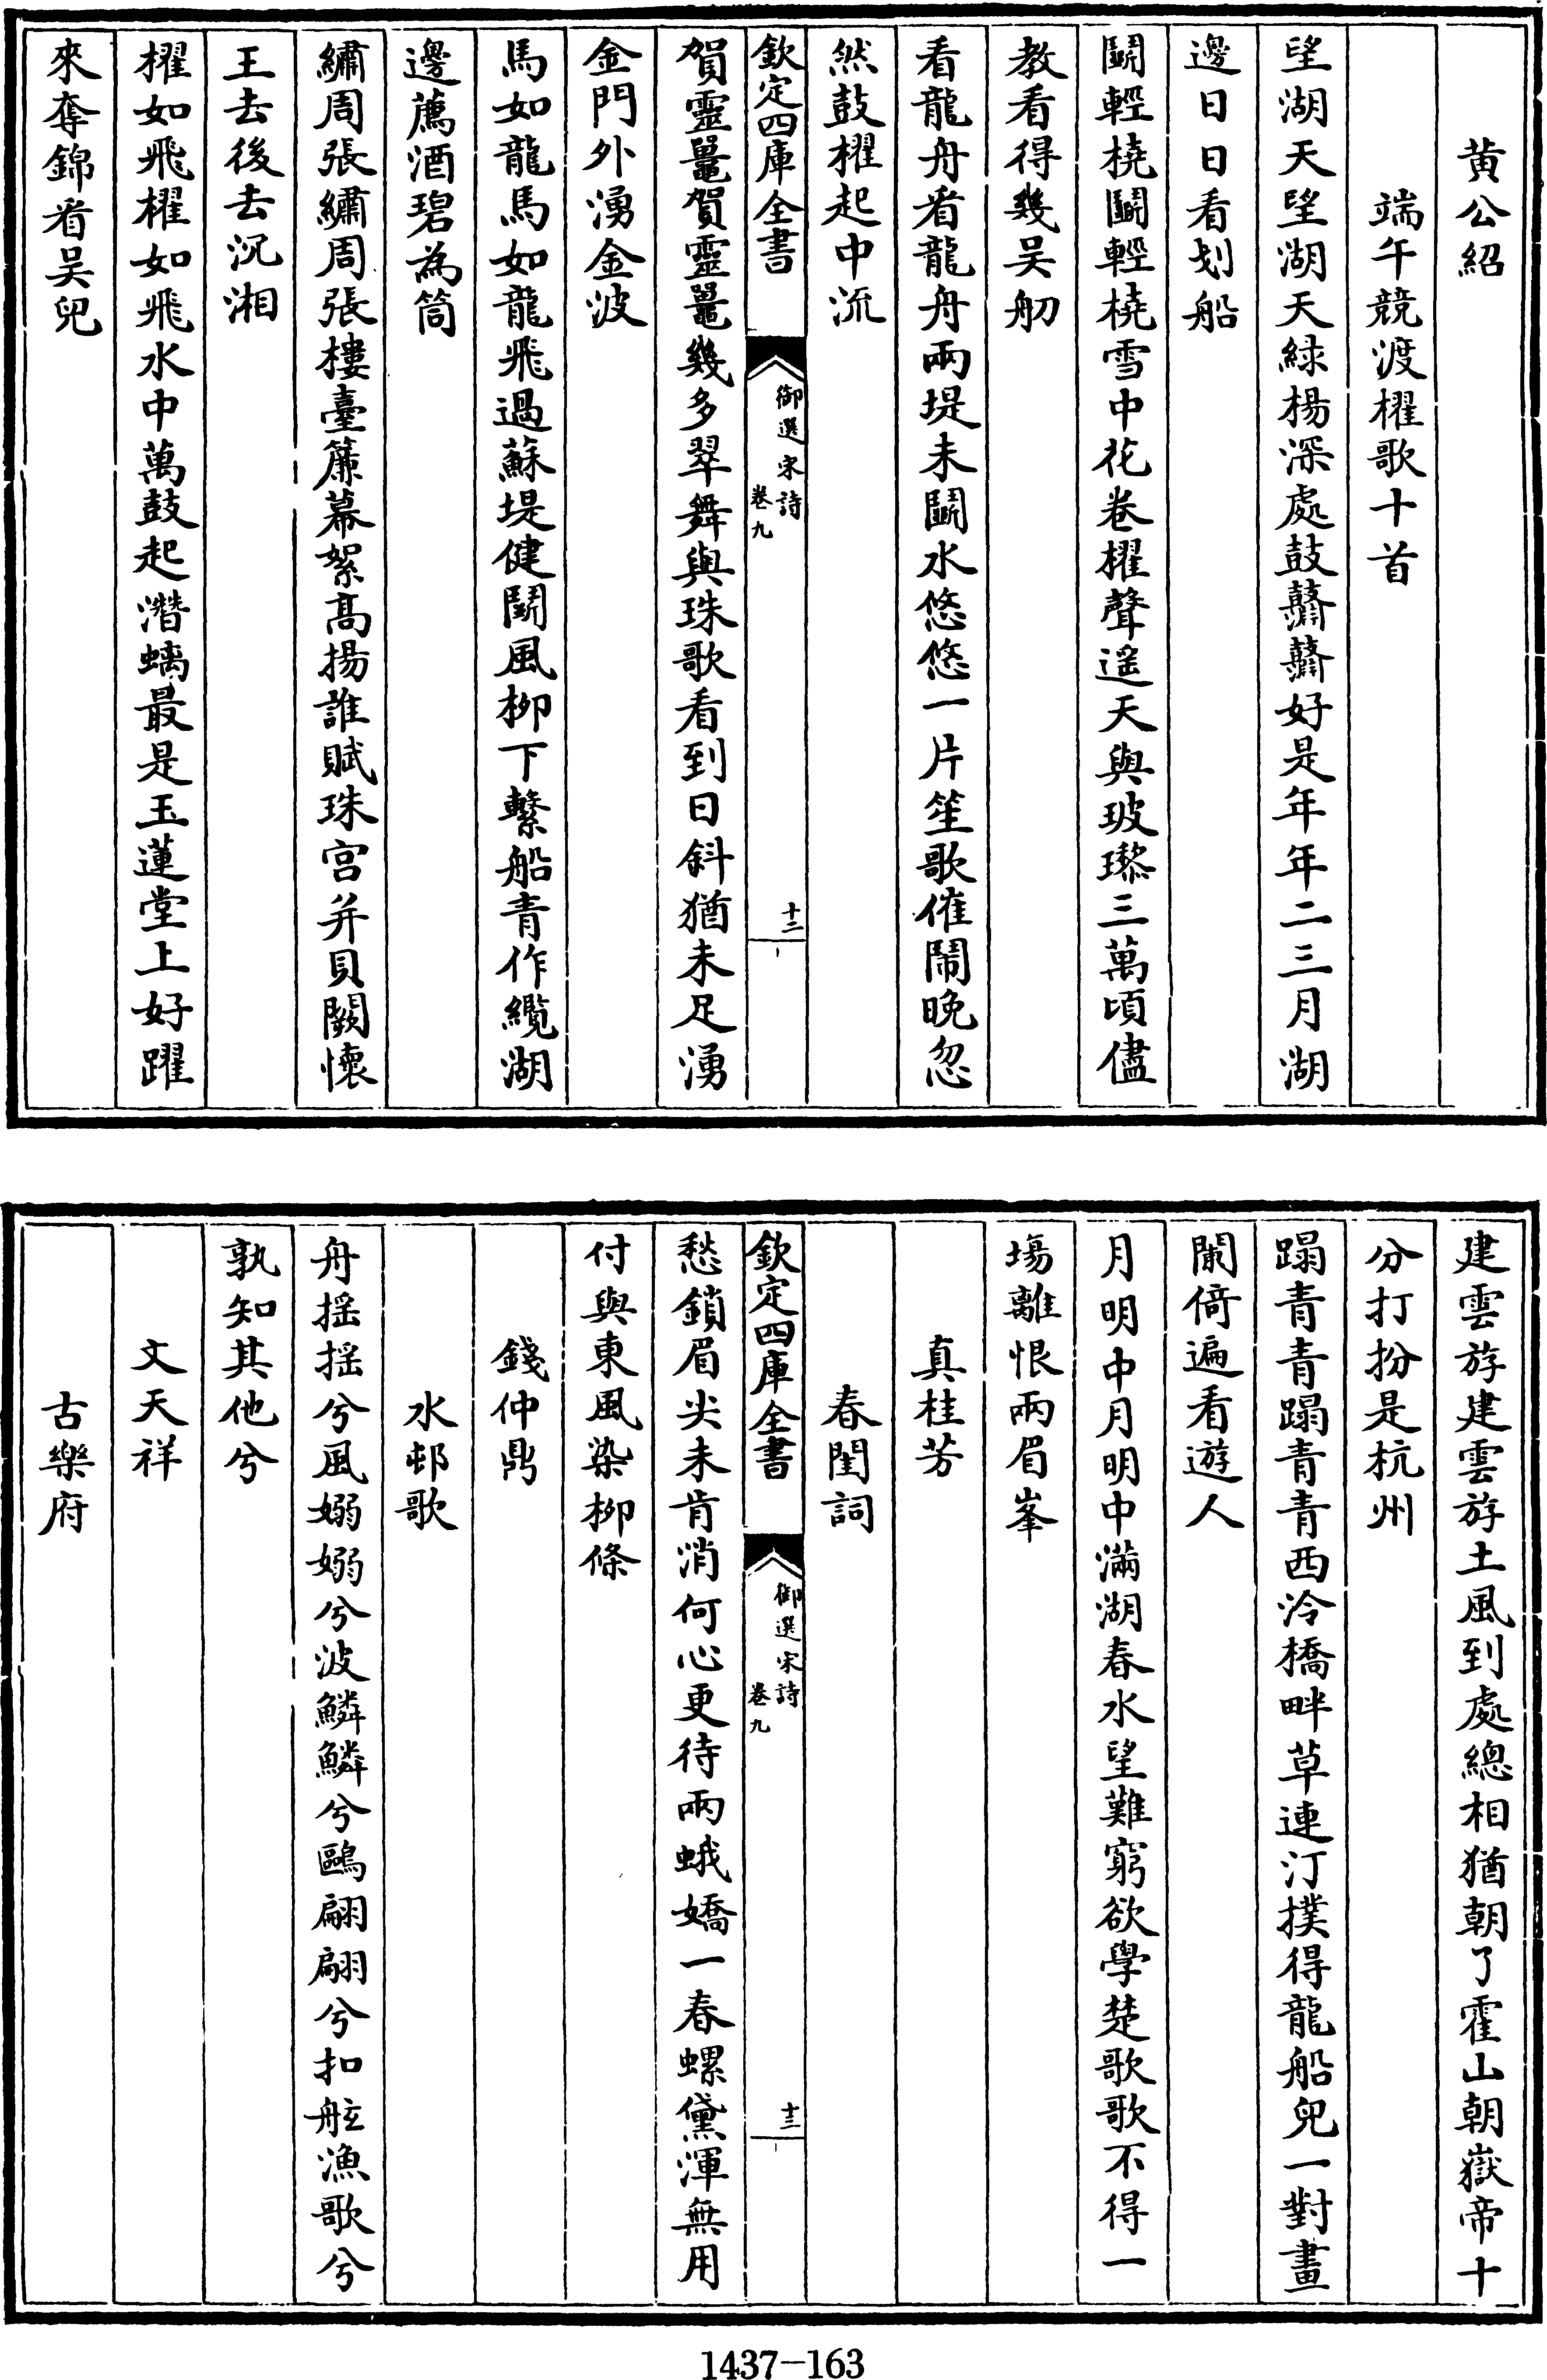 黄公紹
端午競渡櫂歌十首
望湖天望湖天緑楊深處鼓鼘鼘好是年年二三月湖
邊日日看划船
鬬輕橈鬬輕橈雪中花卷櫂聲遥天與玻瓈三萬頃儘
教看得幾吴舠
看龍舟看龍舟兩堤未鬬水悠悠一片笙歌催鬧晚忽
然鼓櫂起中流
欽定四庫全書
御選宋詩
卷九
十二
賀靈鼍賀靈鼍幾多翠舞與珠歌看到日斜猶未足湧
金門外湧金波
馬如龍馬如龍飛過蘇堤健鬬風柳下繫船青作纜湖
邊薦酒碧為筒
繡周張繡周張樓臺簾幕絮髙揚誰賦珠宫并貝闕懐
王去後去沉湘
櫂如飛櫂如飛水中萬鼓起潛螭最是玉蓮堂上好躍
來奪錦看吴兒
建雲斿建雲斿土風到處總相猶朝了霍山朝嶽帝十
分打扮是杭州
蹋青青蹋青青西泠橋畔草連汀撲得龍船兒一對畫
闌倚遍看遊人
月明中月明中滿湖春水望難窮欲學楚歌歌不得一
塲離恨兩眉峯
真桂芳
春閨詞
欽定四庫全書
御選宋詩
卷九
十三
愁鎖眉尖未肯消何心更待兩蛾嬌一春螺黛渾無用
付與東風染柳條
錢仲鼎
水邨歌
舟摇摇兮風嫋嫋兮波鱗鱗兮鷗翩翩兮扣舷漁歌兮
孰知其他兮
文天祥
古樂府
1437-163